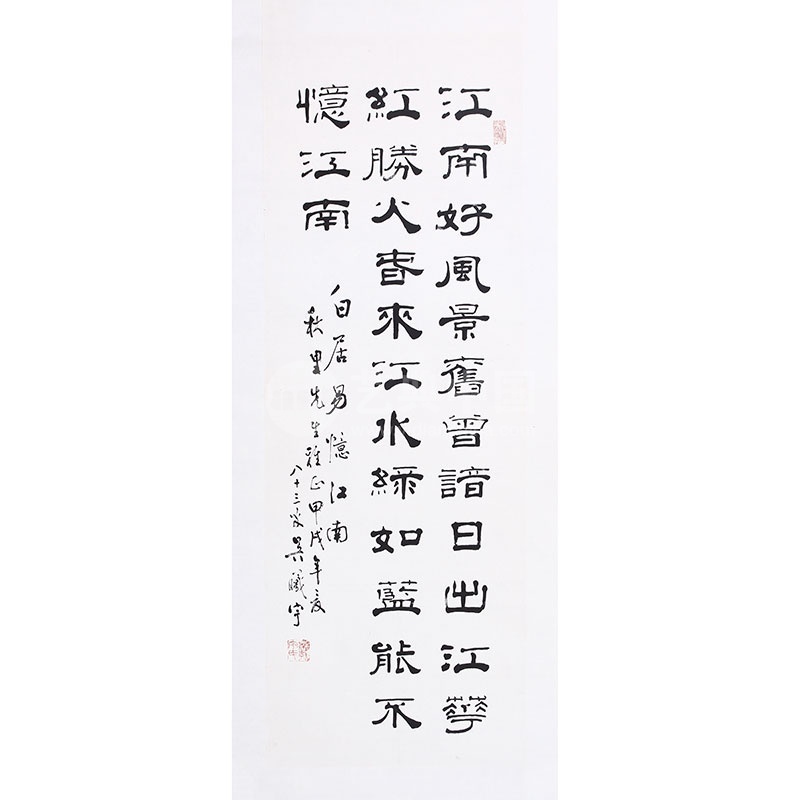 江南好風景舊曾諳日出江華
紅勝火春來江水綠如藍能不
憶江南
白居易憶江南
秋里先生雅正甲戌年夏
八十三叟吳曦宇